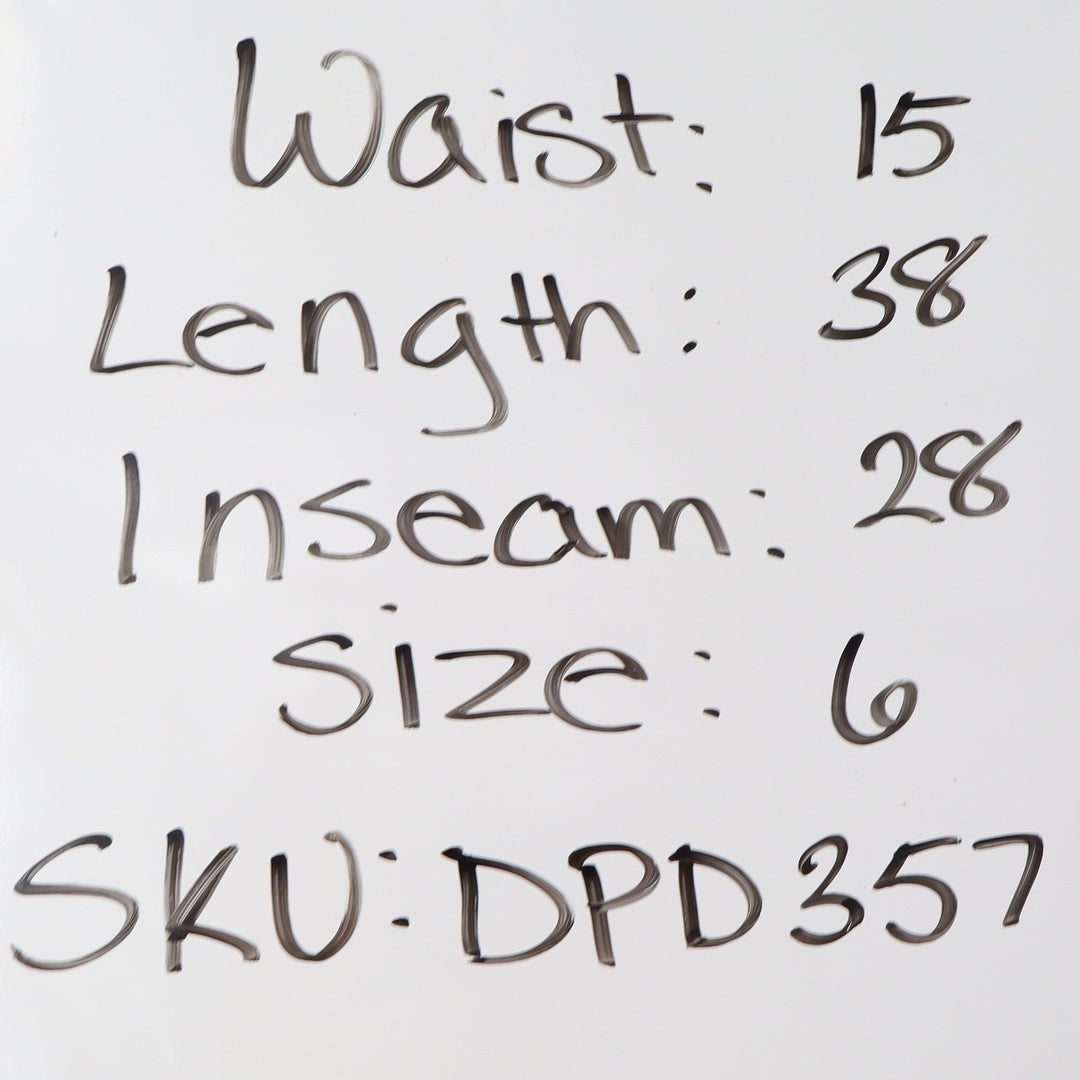 Waist: 15
Length: 38
Inseam: 28
Size: 6
SKU: DPD357